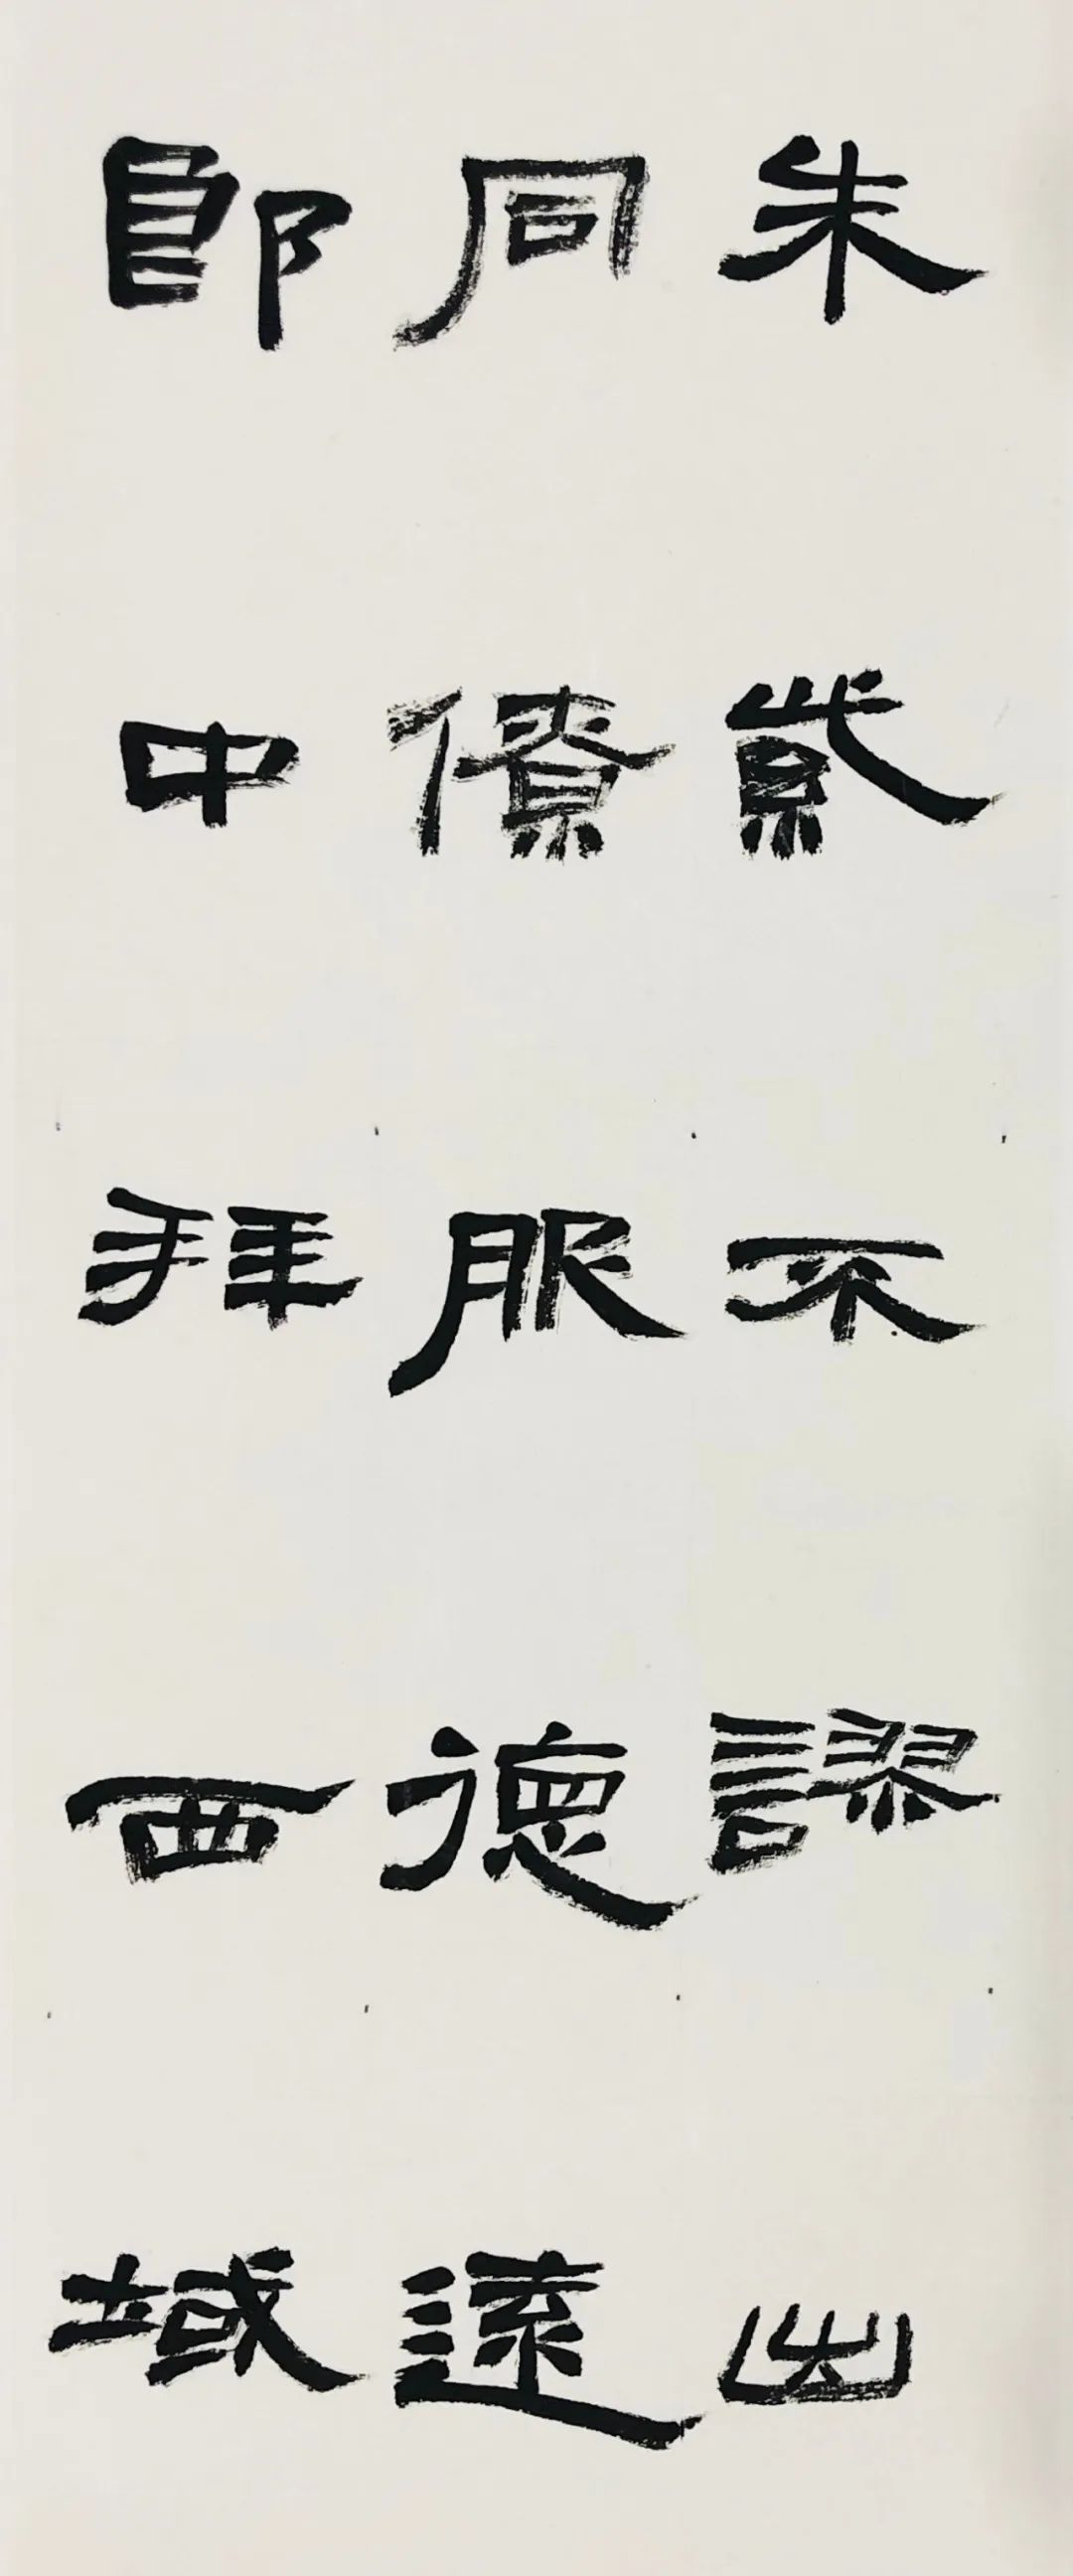 朱紫不謬出
同僚服德遠
郎中拜西域